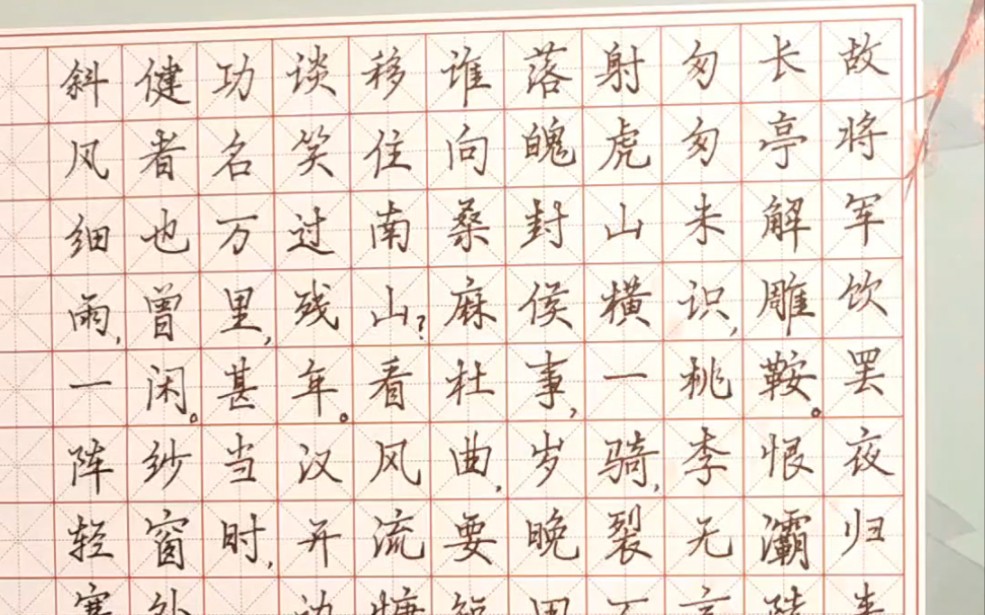 故将军饮罢夜归来
长亭解雕鞍。恨灞陵
匆匆未识,桃李无言
射虎山横一骑,裂石
落魄封侯事,岁晚田
谁向桑麻杜曲,要短
移住南山?看风流慷
谈笑过残年。汉开边
功名万里,甚当时,
健者也曾闲。纱窗外
斜风细雨,一阵轻寒